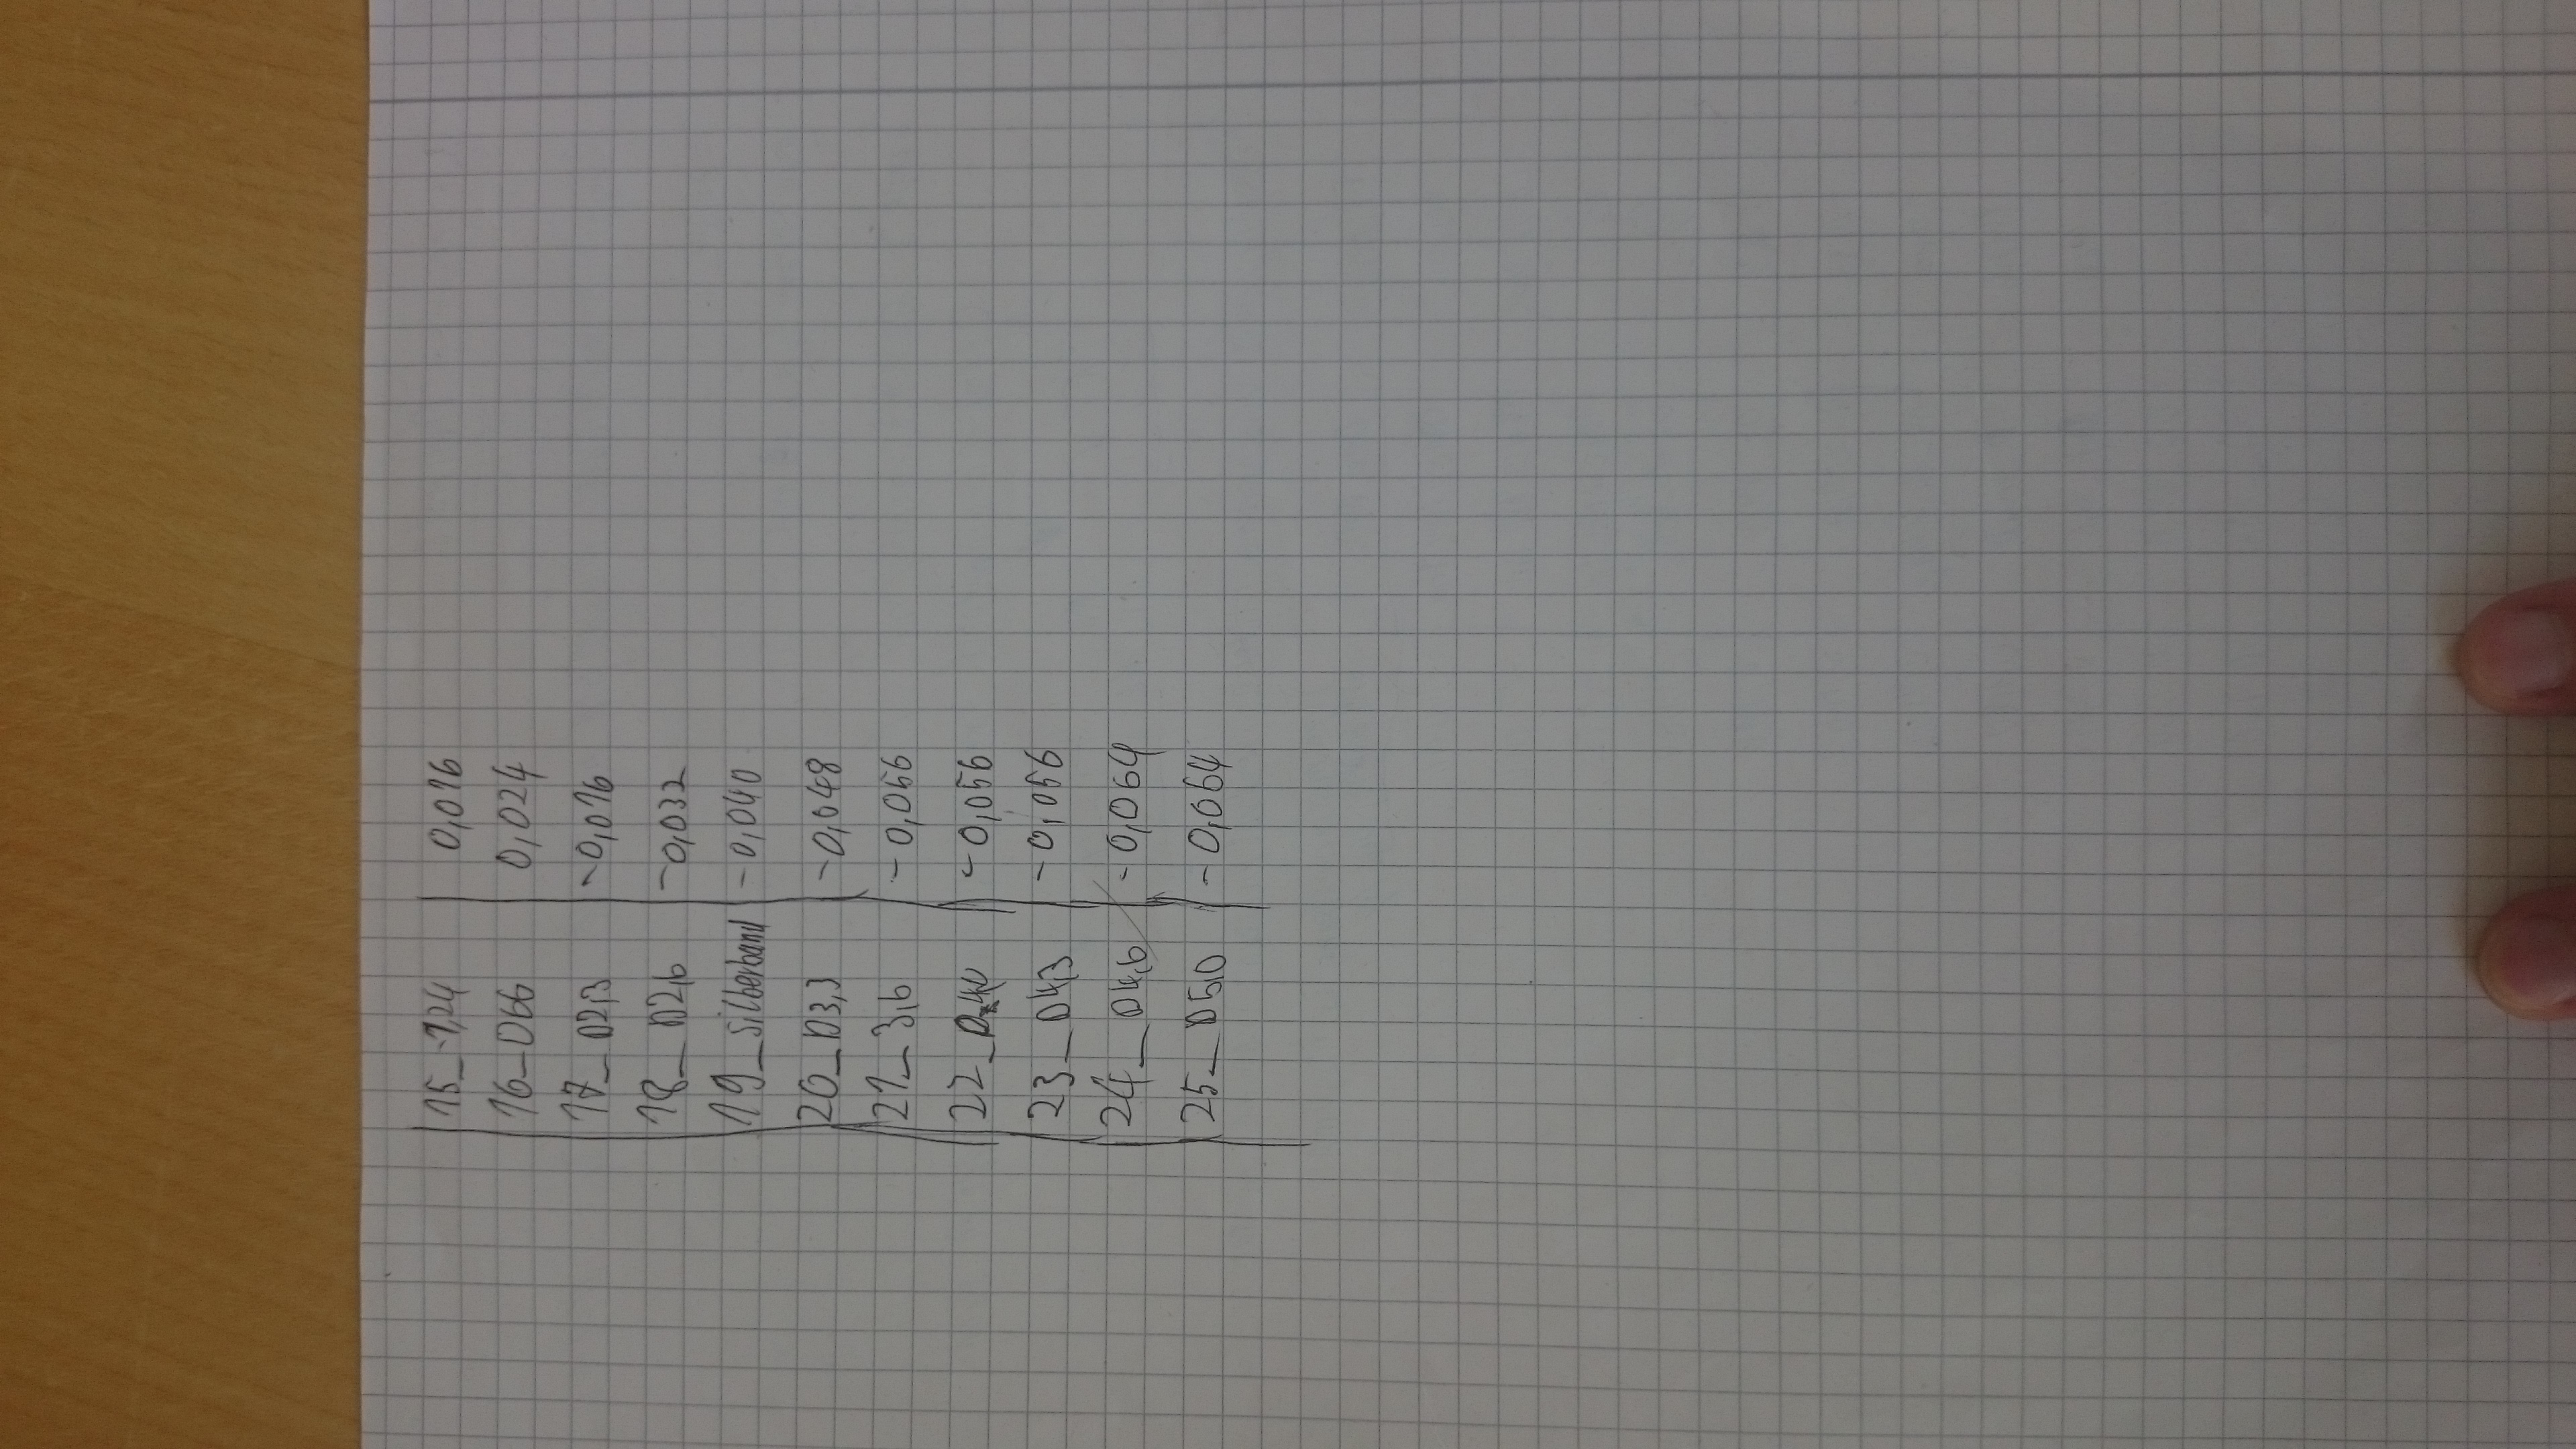 15_1,24 0,016
16_D66 0,024
17_D2,3 -0,016
18_D2,6 -0,032
19_Silberband -0,040
20_D3,3 -0,048
21_3,6 -0,056
22_ -0,056
23_D4,3 -0,056
24_D4,6 -0,064
25_D5,0 -0,064